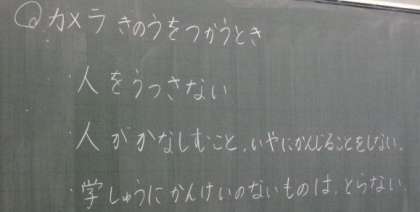 カメラきのうをつかうとき
・人をうつさない
・人がかなしむこと、いやにかんじることをしない。
・学しゅうにかんけいのないものは、とらない